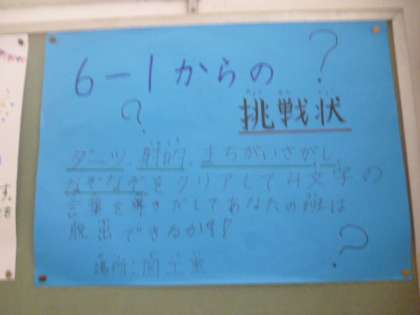 6－1からの
挑戦状
ダーツ、射的、まちがいさがし、
なぞなぞをクリアして4文字の
言葉を導きだしてあなたの班は
脱出できるか!?
場所：